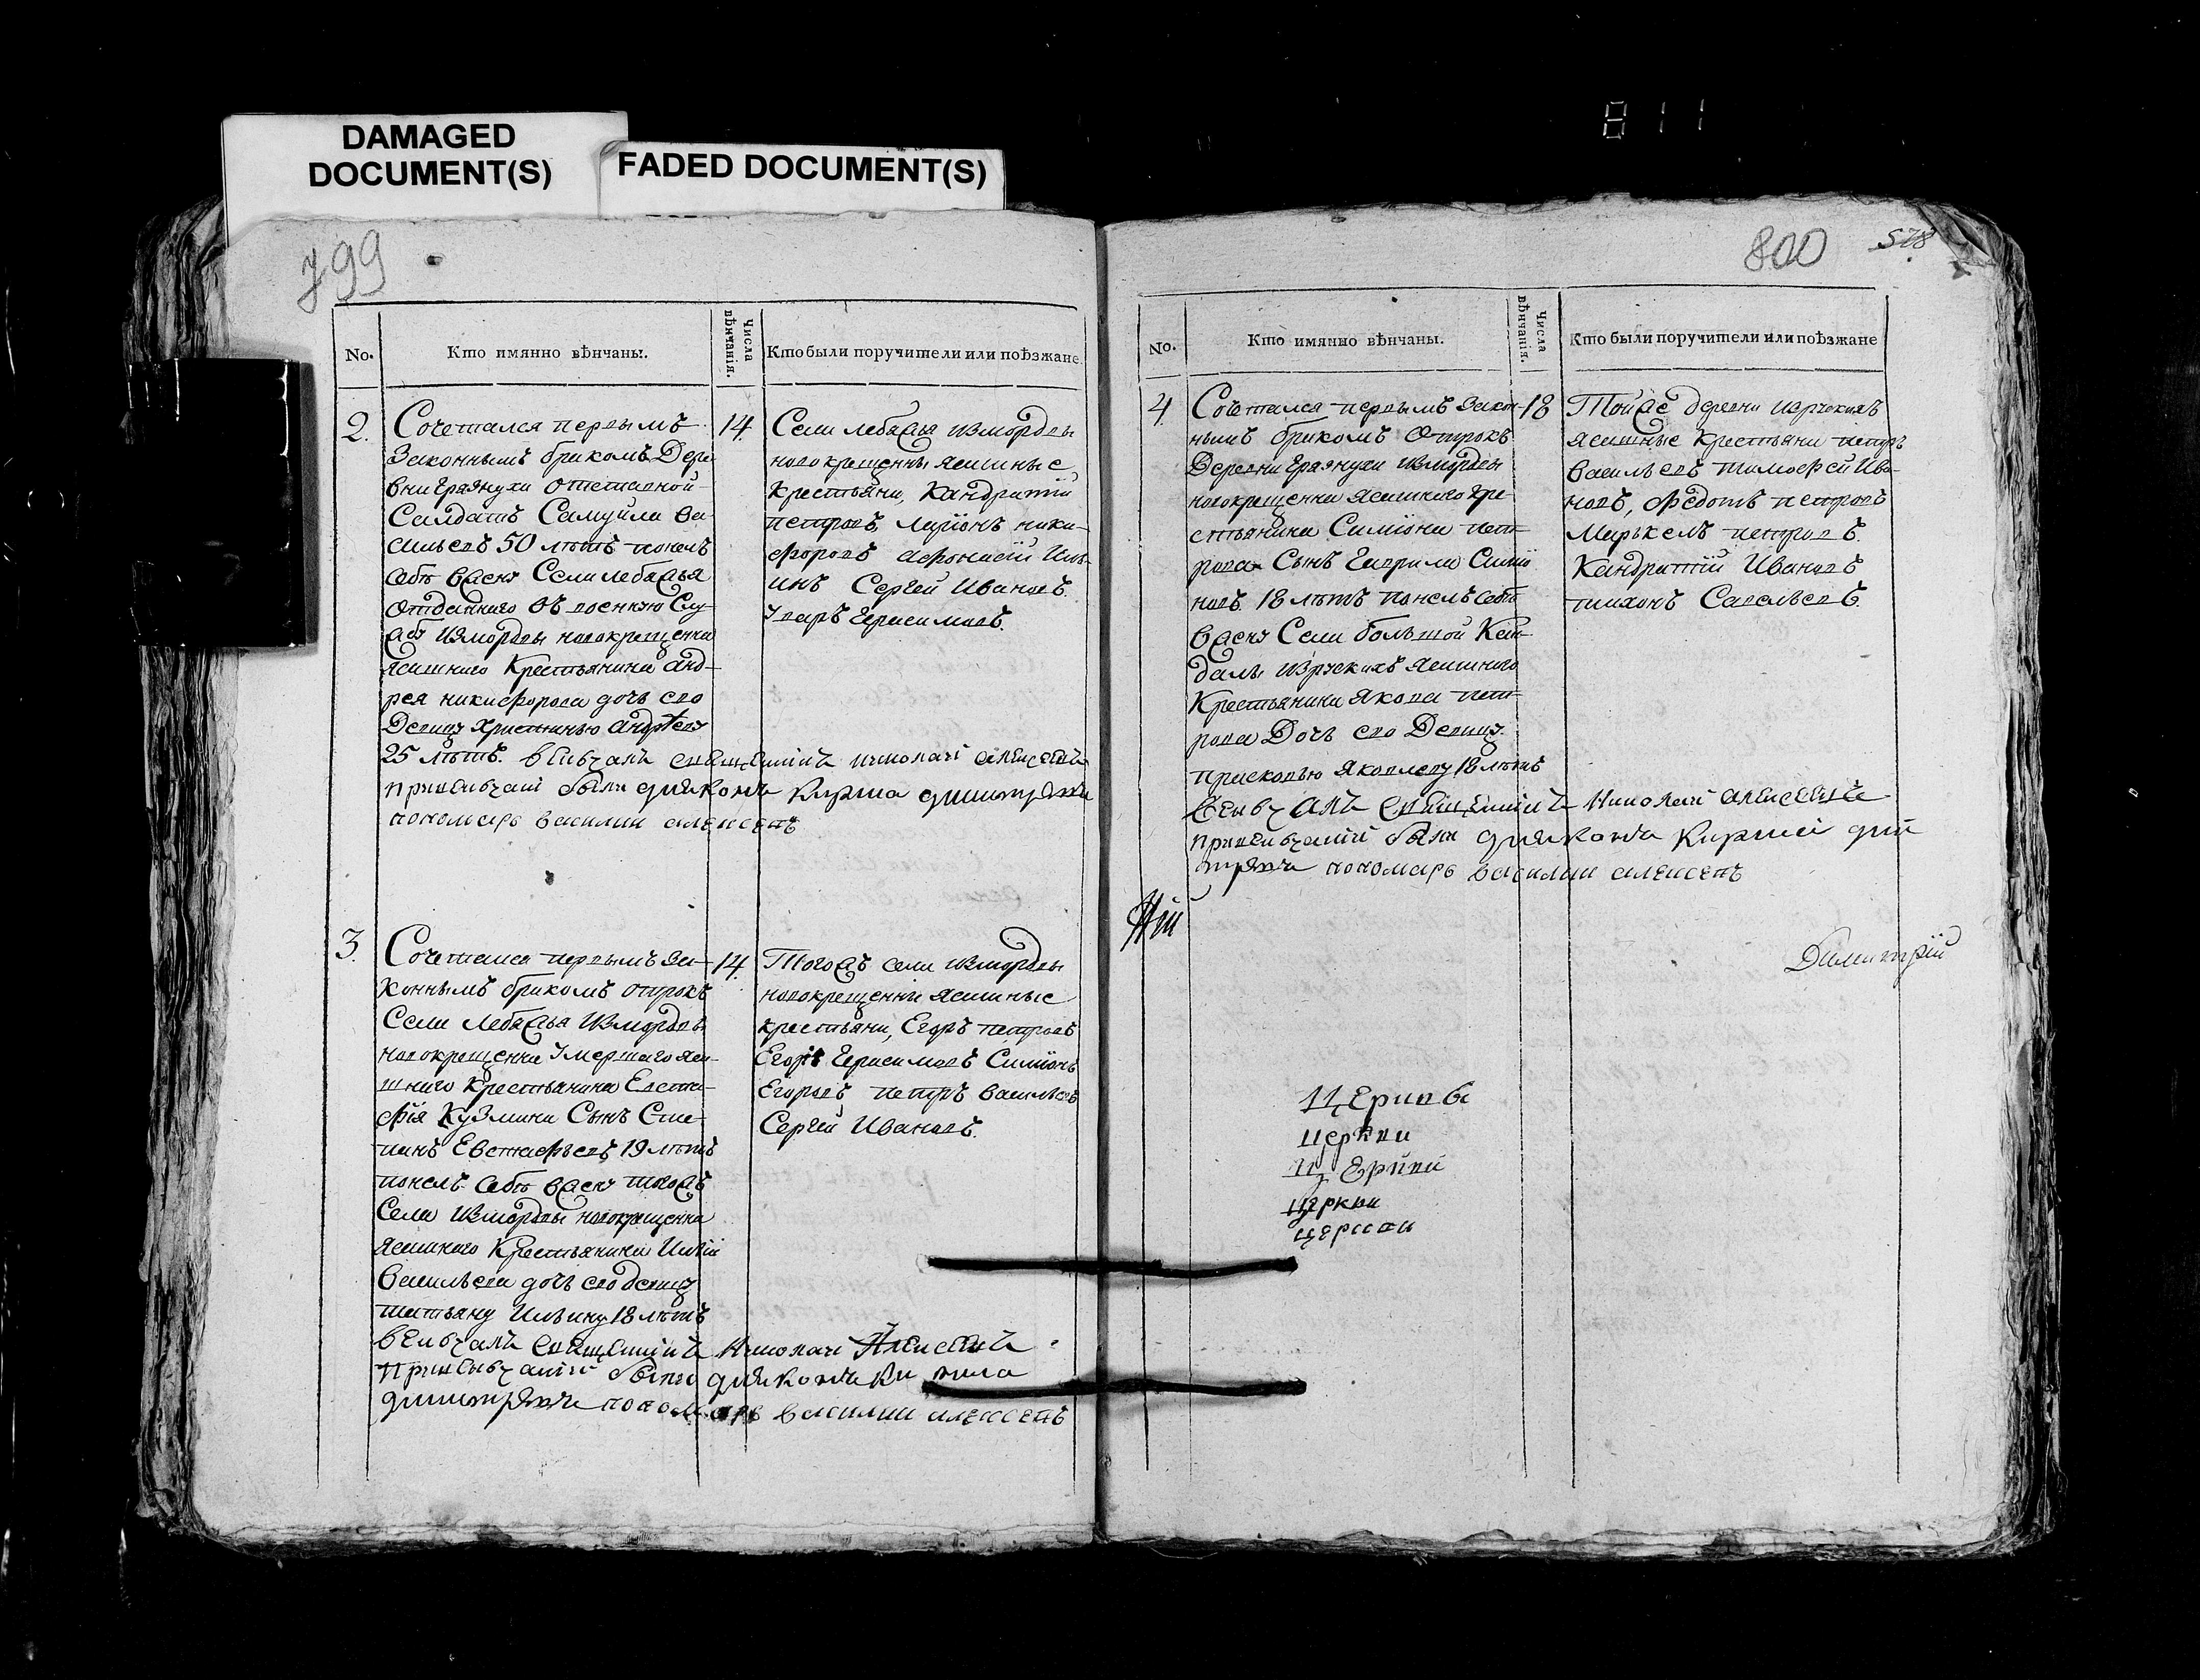 DAMAGED
DOCUMENT(S)
FADED DOCUMENT(S)
811
799
No.
Кто имянно вѣнчаны.
Числа
вѣнчанія.
Кто были поручители или поѣзжане
2.
Сочетался первымъ
законнымъ бракомъ Дере
вни отставной
Салдатъ Самуйла Ва
сильевъ 50 лѣтъ понелъ
себѣ вжену Села лебежья
отданнаго въ военную слу
жбу измордвы новокрещенна
ясашнаго Крестьянина Анд-
рея никифорова дочь ево
Девицу Христинью андрѣеву
25 лѣтъ. венчалъ священникъ николай алексеевъ
привенчаніи были дияконъ димитриевъ
пономарь василий алексеевъ
14.
Села лебежья измордвы
новокрещенны ясашные
крестьяни, Кандратій
петровъ, Ларионъ ники-
форовъ Афонасій Иль-
инъ Сергей Ивановъ.
Уваръ Герасимовъ.
3.
Сочетался первымъ за-
коннымъ бракомъ отрокъ
Села Лебежья измордвы
новокрещенна умершаго яса-
шнаго крестьянина Евста-
фія Кузмина Сынъ Сте-
панъ Евстафьевъ 19 лѣтъ
понелъ себѣ вжену тогожъ
Села измордвы новокрещенна
ясашнаго Крестьянина Ильи
Васильева дочь ево девицу
татьяну Ильину 18 лѣтъ
венчалъ священникъ Николай Алексеевъ
привенчаніи были дияконъ
димитриевъ пономарь василий алексеевъ
14.
Тогожъ села измордвы
новокрещенни ясашные
крестьяни, Егоръ петровъ
Егоръ Герасимовъ Симіонъ
Егоровъ петръ васильевъ
Сергей Ивановъ.
800
578
No.
Кто имянно вѣнчаны.
Числа
вѣнчанія.
Кто были поручители или поѣзжане
4.
Сочетался первымъ закон-
нымъ бракомъ Отрокъ
Деревни измордвы
новокрещенна ясашнаго кре-
стьянина Симіона пет-
рова Сынъ Гаврила Симио
новъ 18 лѣтъ понелъ себѣ
вжену Села большой Кан-
далы изрускихъ ясашного
Крестьянина Якова пет-
рова Дочь ево Девицу
прасковью Яковлеву 18 лѣтъ
венчалъ священникъ Николай алексеевъ
привенчаніи были дияконъ дми
триевъ пономарь василий алексеевъ
18
Тойже деревни изрускихъ
ясашные крестьяни петръ
васильевъ тимофей Ива-
новъ, Федотъ петровъ
Маркелъ петровъ.
Кандратій Ивановъ
тихонъ Савельевъ.
Димитрій
церкви
церкви
церкви
церкви